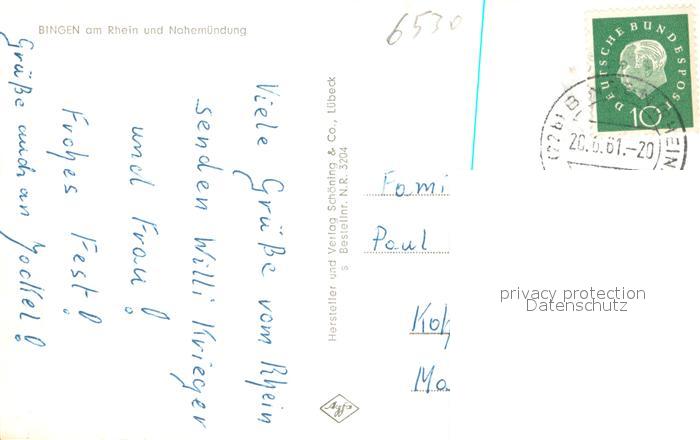 BINGEN am Rhein und Nahemündung
6530
Viele Grüße vom Rhein
senden Willi Krieger
und Frau!
Frohes Fest!
Grüße auch an Jockel!
Hersteller und Verlag Schöning & Co., Lübeck
s Bestellnr. N.R. 3204
Agfa
DEUTSCHE BUNDESPOST
10
(22b) B
RHEIN
20.6.61.-20
Fami
Paul
privacy protection
Datenschutz